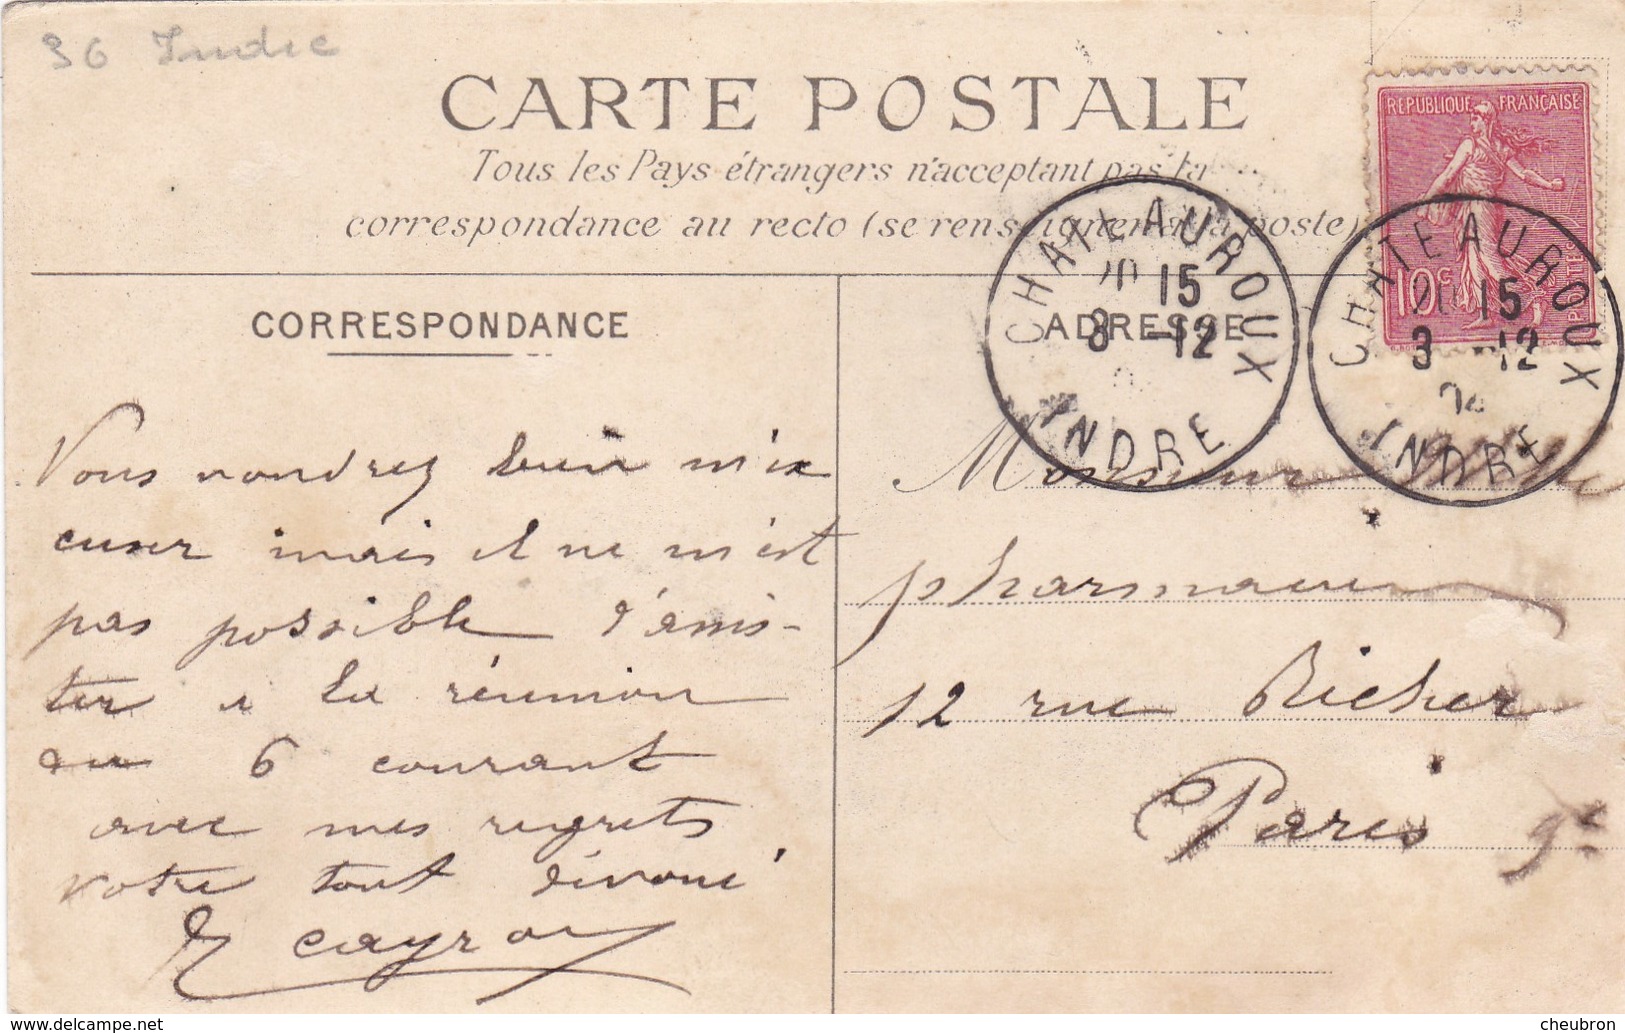 36 Indre
CARTE POSTALE
Tous les Pays étrangers n'acceptant pas la
correspondance au recto (se renseigner à la poste)
REPUBLIQUE FRANÇAISE
10c
POSTES
CHATEAUROUX
15
3 -12
INDRE
CHATEAUROUX
15
3 -12
INDRE
CORRESPONDANCE
ADRESSE
Vous voudrez bien m'ex
cuser mais il ne m'est
pas possible d'assis-
ter à la réunion
du 6 courant
avec mes regrets
votre tout dévoué
Cayron
Monsieur
pharmacien
12 rue Richer
Paris 9e
cheubron.delcampe.net